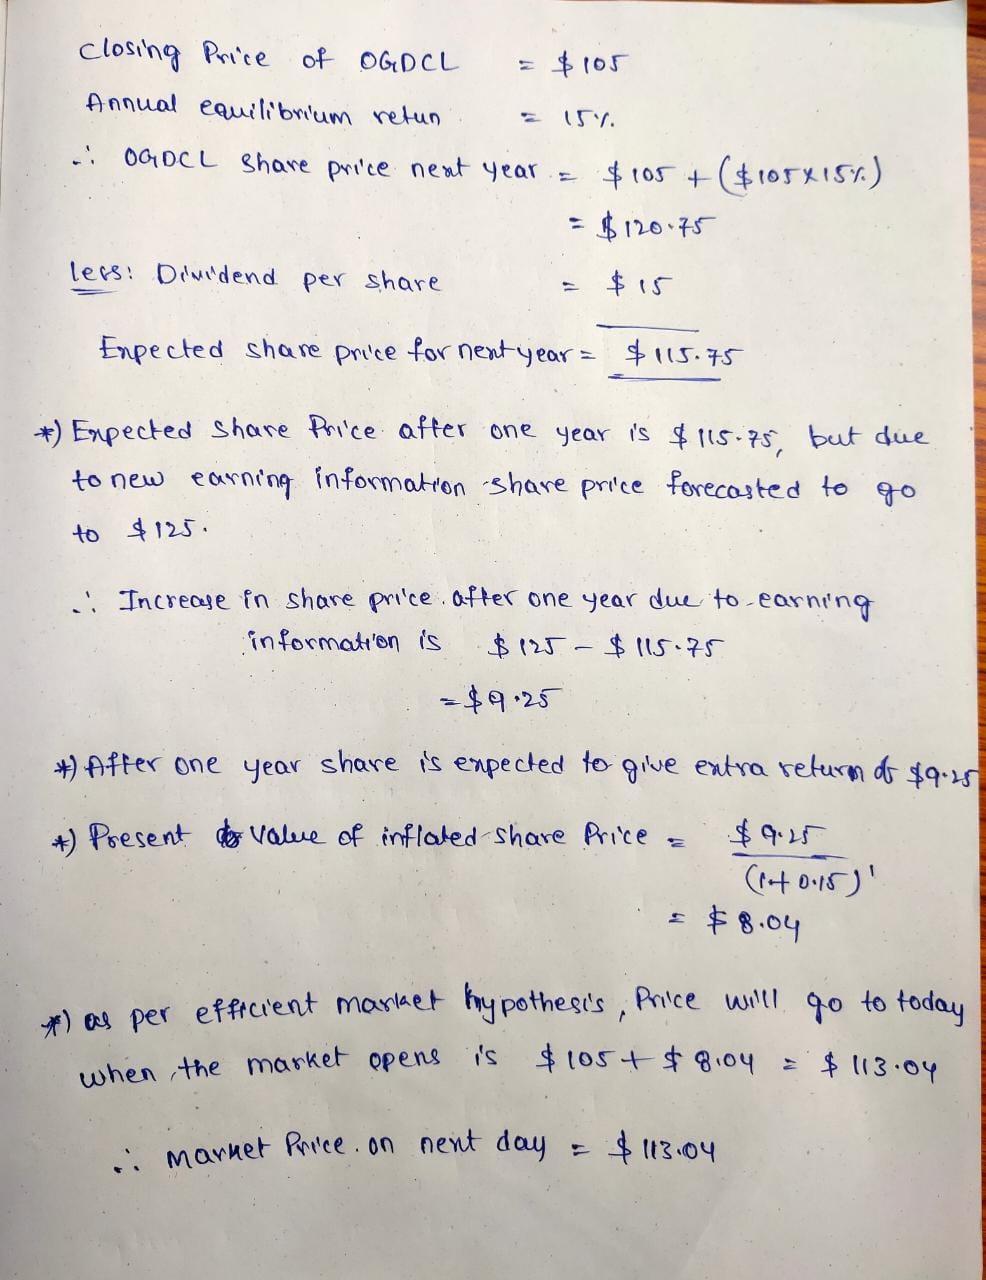 Closing Price of OGDCL = $105
Annual equilibrium retun = 15%.
∴ OGDCL Share price next year = $105 + ($105x15%)
= $120.75
less: Dividend per share = $15
Expected share price for next year = $115.75
*) Expected Share Price after one year is $115.75, but due
to new earning information share price forecasted to go
to $125.
∴ Increase in share price after one year due to earning
information is $125 - $115.75
= $9.25
*) After one year share is expected to give extra return of $9.25
*) Present Value of inflated share Price = $9.25
(1+0.15)¹
= $8.04
*) as per efficient market hypothesis, Price will go to today
when the market opens is $105 + $8.04 = $113.04
∴ Market Price on next day = $113.04